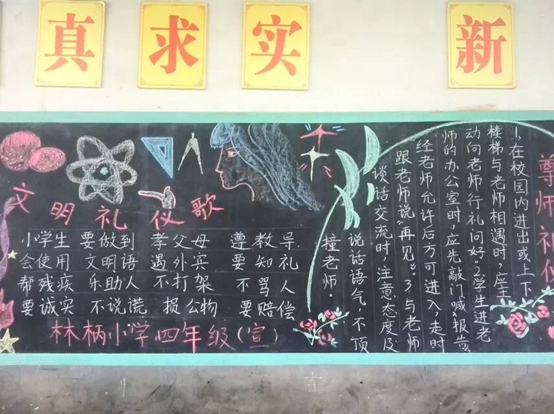 真 求 实 新
文明礼仪歌
小学生 要做到 孝父母 遵教导
会使用 文明语 遇外宾 要知礼
帮残疾 乐助人 不打架 不骂人
要诚实 不说谎 损公物 要赔偿
林柄小学四年级(宣)
尊师礼仪
1,在校园内进出或上下
楼梯与老师相遇时,应主
动向老师行礼问好,2学生进老
师的办公室时,应先敲门喊报告
经老师允许后方可进入,走时
跟老师说"再见"。3,与老师
谈话交流时,注意态度及
说话语气,不顶
撞老师.